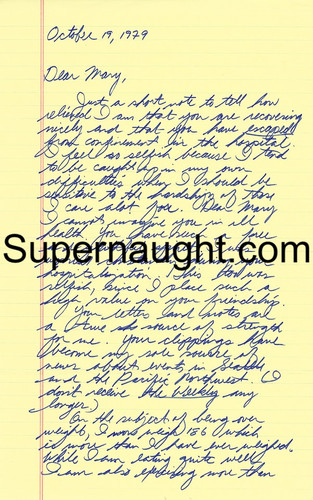 October 19, 1979
Dear Mary,
Just a short note to tell how
relieved I am that you are recovering
nicely and that you have escaped
from confinement in the hospital.
I feel so selfish because I tend
to be caught up in my own
difficulties when I should be
sensitive to the hardships of those
I care about you. Dear Mary
I cannot imagine you in ill
health. You have such a free
Supernaught.com
hospitalization. This too was
selfish, since I place such a
high value on your friendship.
Your letters and notes are
a true source of strength
for me. Your clippings have
become my sole source of
news about events in Seattle
and the Pacific Northwest. (I
don't receive the Weekly any
longer.)
On the subject of being over
weight, I now weigh 186 which
is more than I have ever weighed.
While I am eating quite well
I am also exercising more than